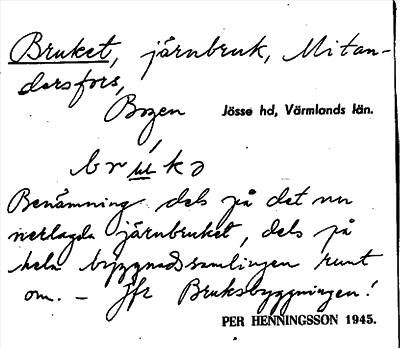 Bruket, järnbruk, Mitan-
dersfors,
Bogen Jösse hd, Värmlands län.
bru̲kə
Benämning dels på det nu
nerlagda järnbruket, dels på
hela byggnadssamlingen runt
om. – Jfr Bruksbyggningen!
PER HENNINGSSON 1945.